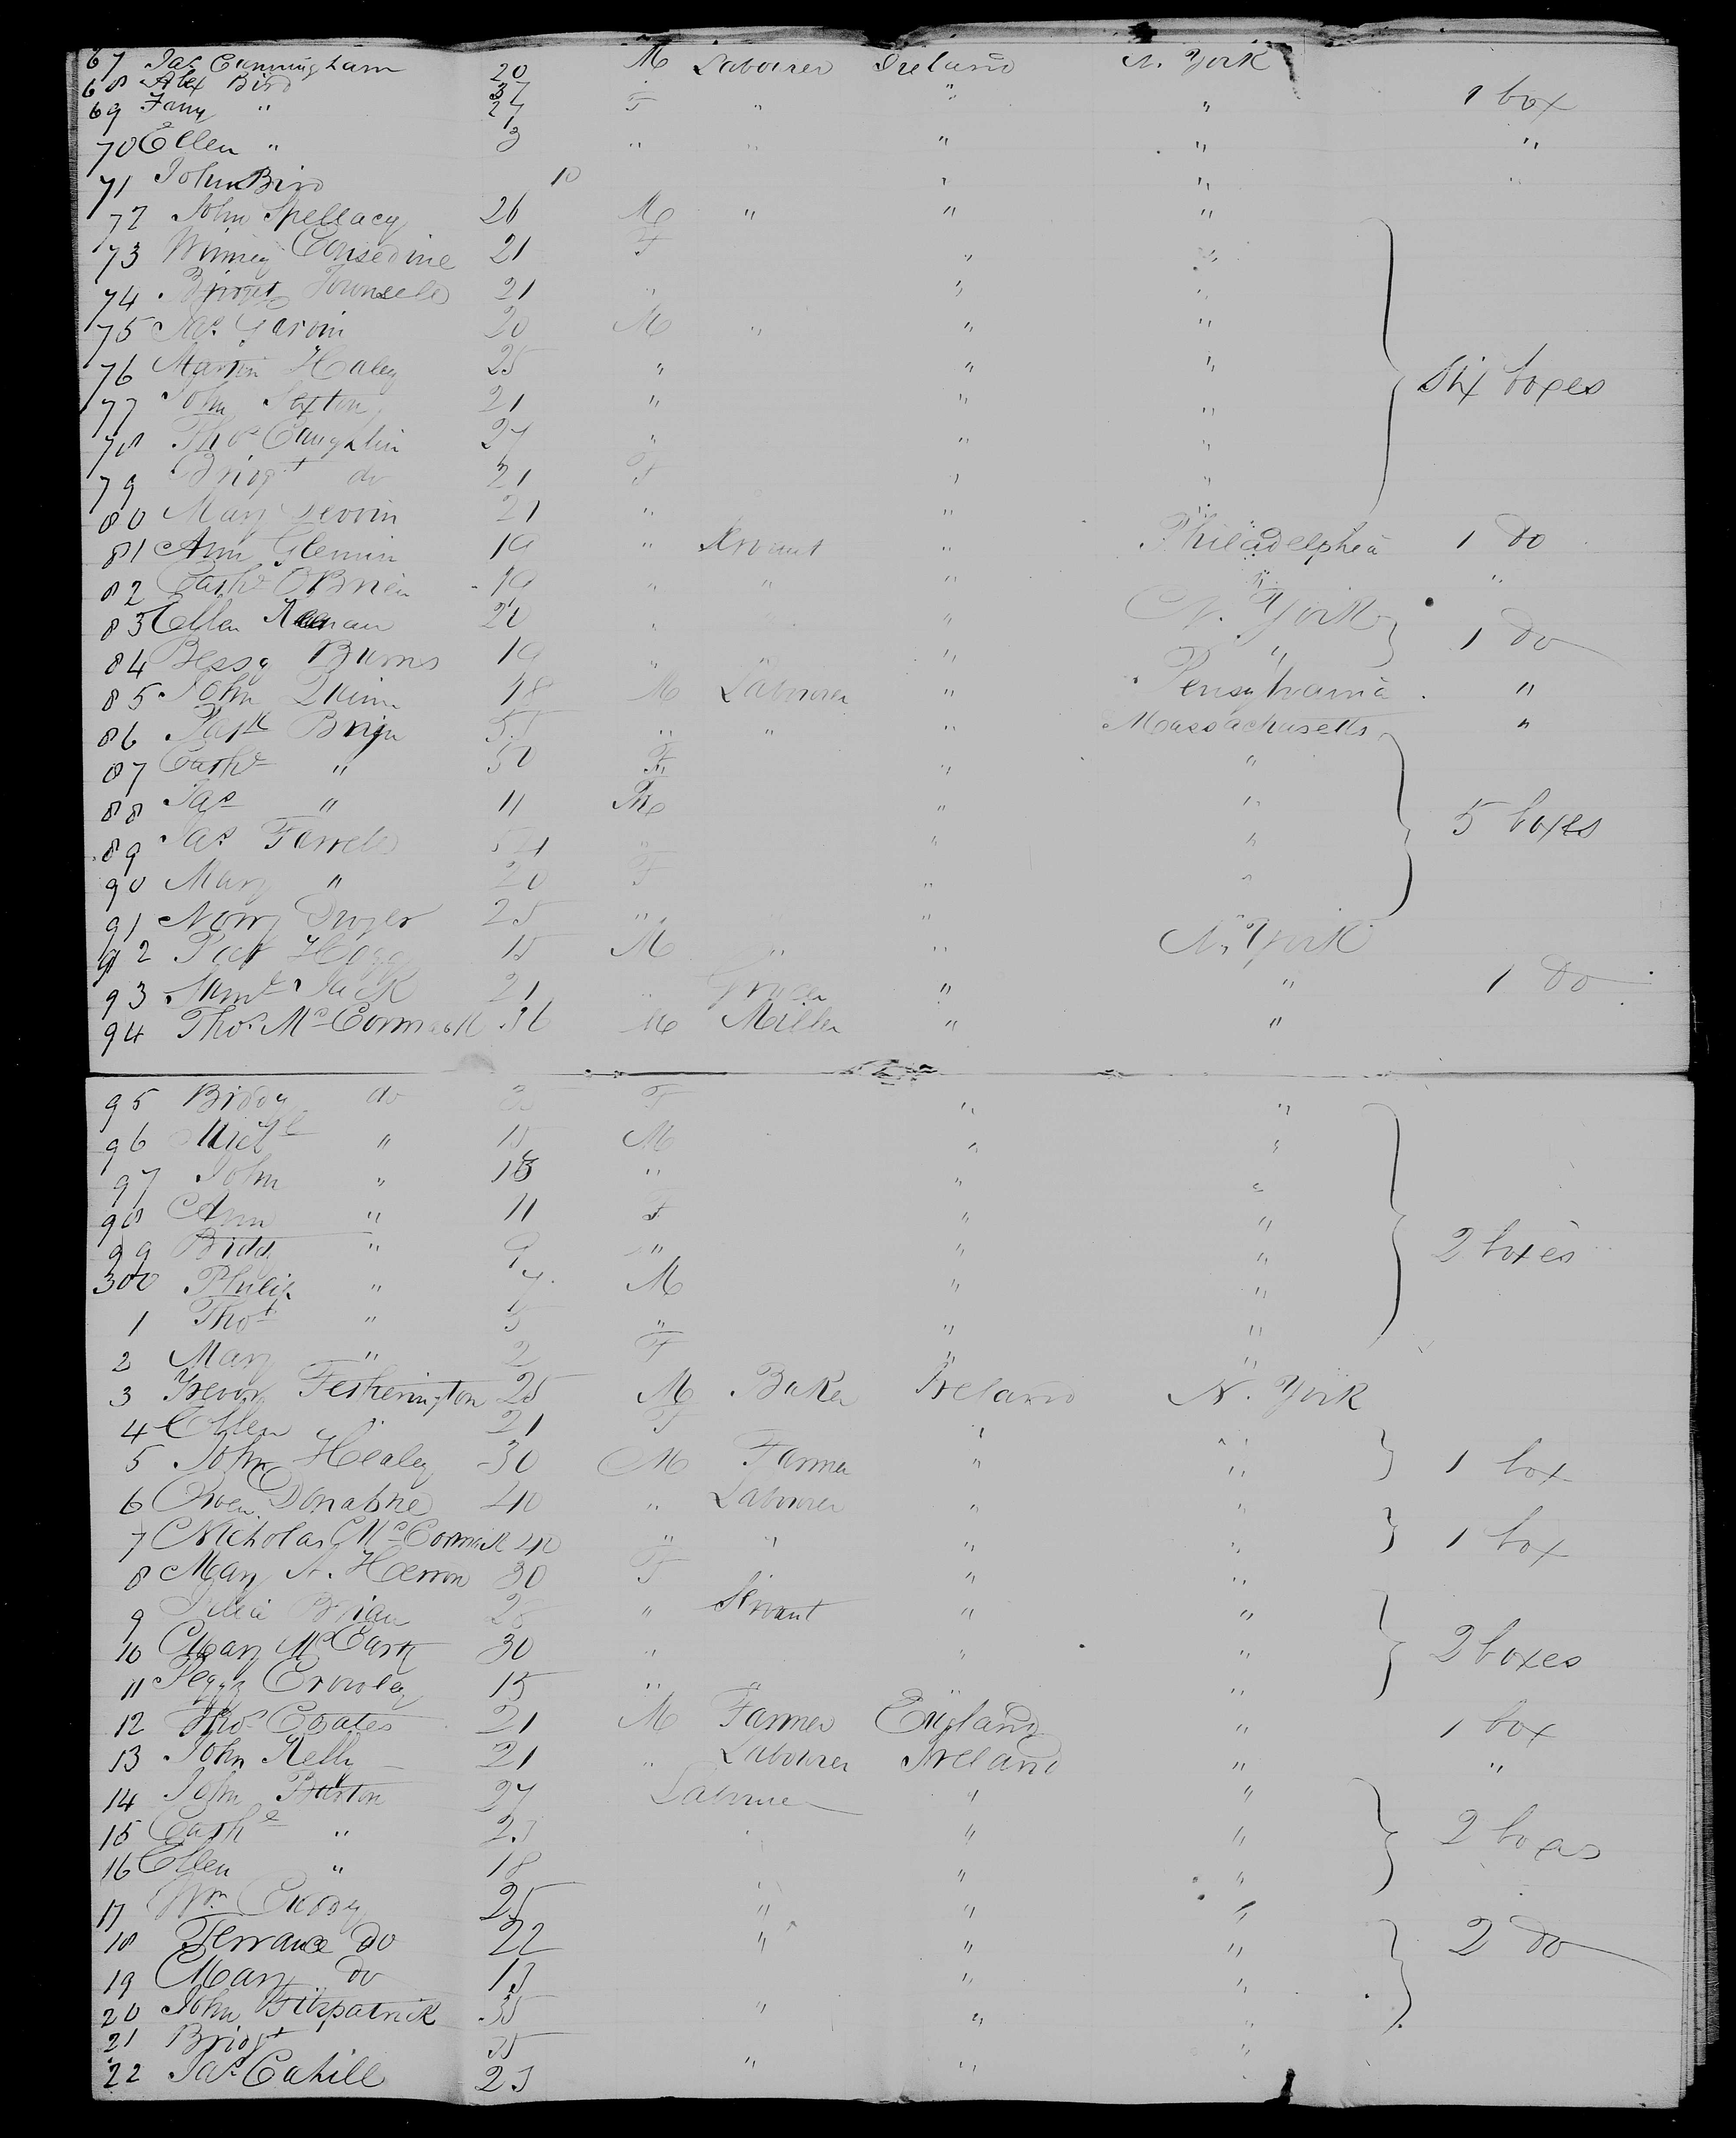 67 Jas Cunningham 20 M Labourer Ireland N. York
68 Alex Bird 37 " 1 box
69 Fany " 27 F " " "
70 Ellen " 3 " " " " "
71 John Bird 10 " "
72 John Spellacy 26 M " " "
73 Winney Considine 21 F " "
74 Bridget 21 " " "
75 Jas Garvin 20 M " " "
76 Martin Haley 25 " " " six boxes
77 John Sexton 21 " " "
78 Thos Caughlin 27 " " "
79 Bridgt do 21 F " "
80 Mary 21 " " "
81 Ann Glennin 19 " Servant " Philadelphia 1 do
82 Cathe O'Brien 19 " " " " "
83 Ellen 20 " " N. York 1 do
84 Bessy Burns 19 " " " "
85 John Quinn 18 M Labourer " Pensylvania "
86 Patk " " " Massachusetts "
87 Cathe " 50 F " "
88 Jas " 11 M " " 5 boxes
89 Jas Farrell " " "
90 Mary " 20 F " "
91 Norry Dwyer 25 " "
92 Pat 15 M " " N. York
93 Saml Jack 21 " Grocer " " 1 do
94 Thos McCormack 36 M Miller " "
95 Biddy do F " "
96 Michl " 15 M " "
97 John " 13 " " "
98 Ann " 11 F " "
99 Bidy " 9 " " " 2 boxes
300 Philip " 7 M " "
1 Thos " 5 " " "
2 Mary " 2 F " "
3 Trevor Fetherington 25 M Baker Ireland N. York
4 Ellen " 21 F " "
5 John Healey 30 M Farmer " " 1 box
6 Owen Donahue 40 " Labourer " "
7 Nicholas McCormack 40 " " " " 1 box
8 Mary A. Herron 30 F " "
9 Julia Brian 28 " Servant " "
10 Mary McCarty 30 " " " 2 boxes
11 Peggy Crowley 15 " " " "
12 Thos Coates 21 M Farmer England " 1 box
13 John Kelly 21 " Labourer Ireland " "
14 John Burton 27 Labourer " "
15 Cathe " 23 " " 2 boxes
16 Ellen " 18 " "
17 Wm 25 " " "
18 Terrance do 22 " " " 2 do
19 Mary do 13 " "
20 John Fitzpatrick 35 " " "
21 Bridgt 35 "
22 Jas Cahill 23 " " "